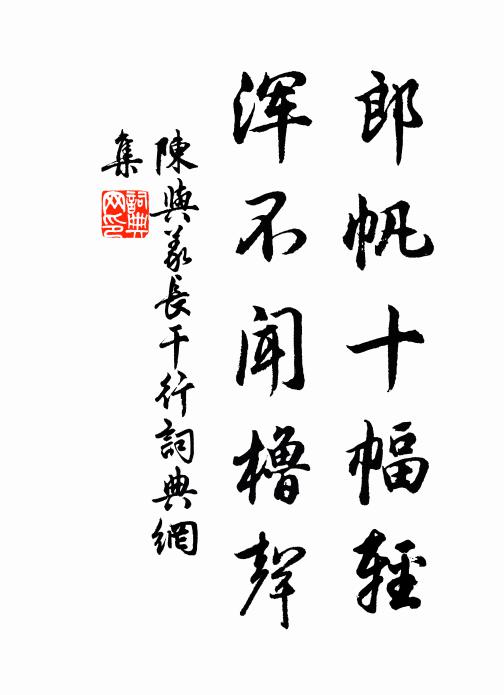 郎帆十幅輕
渾不聞櫓聲
陳與義長干行詞典網
集
詞典
网印